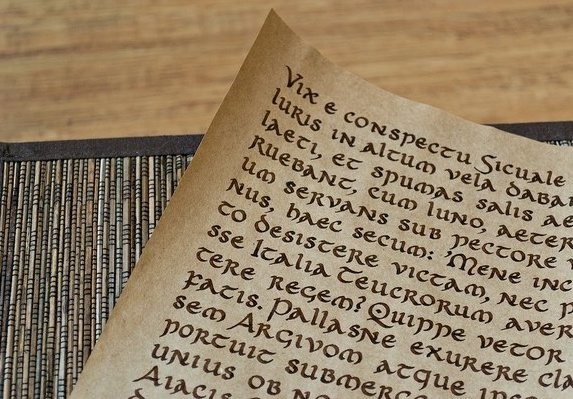 Vix e conspectu Sicuale
luris in altum vela daba
laeti, et spumas salis ae
ruebant, cum Iuno, aeter
um servans sub pectore v
nus, haec secum: 'Mene inc
to desistere victam, nec p
sse Italia Teucrorum aver
tere regem? Quippe vetor
fatis. Pallasne exurere cla
sem Argivom atque ips
portuit submerge
unius ob no
Aiacis